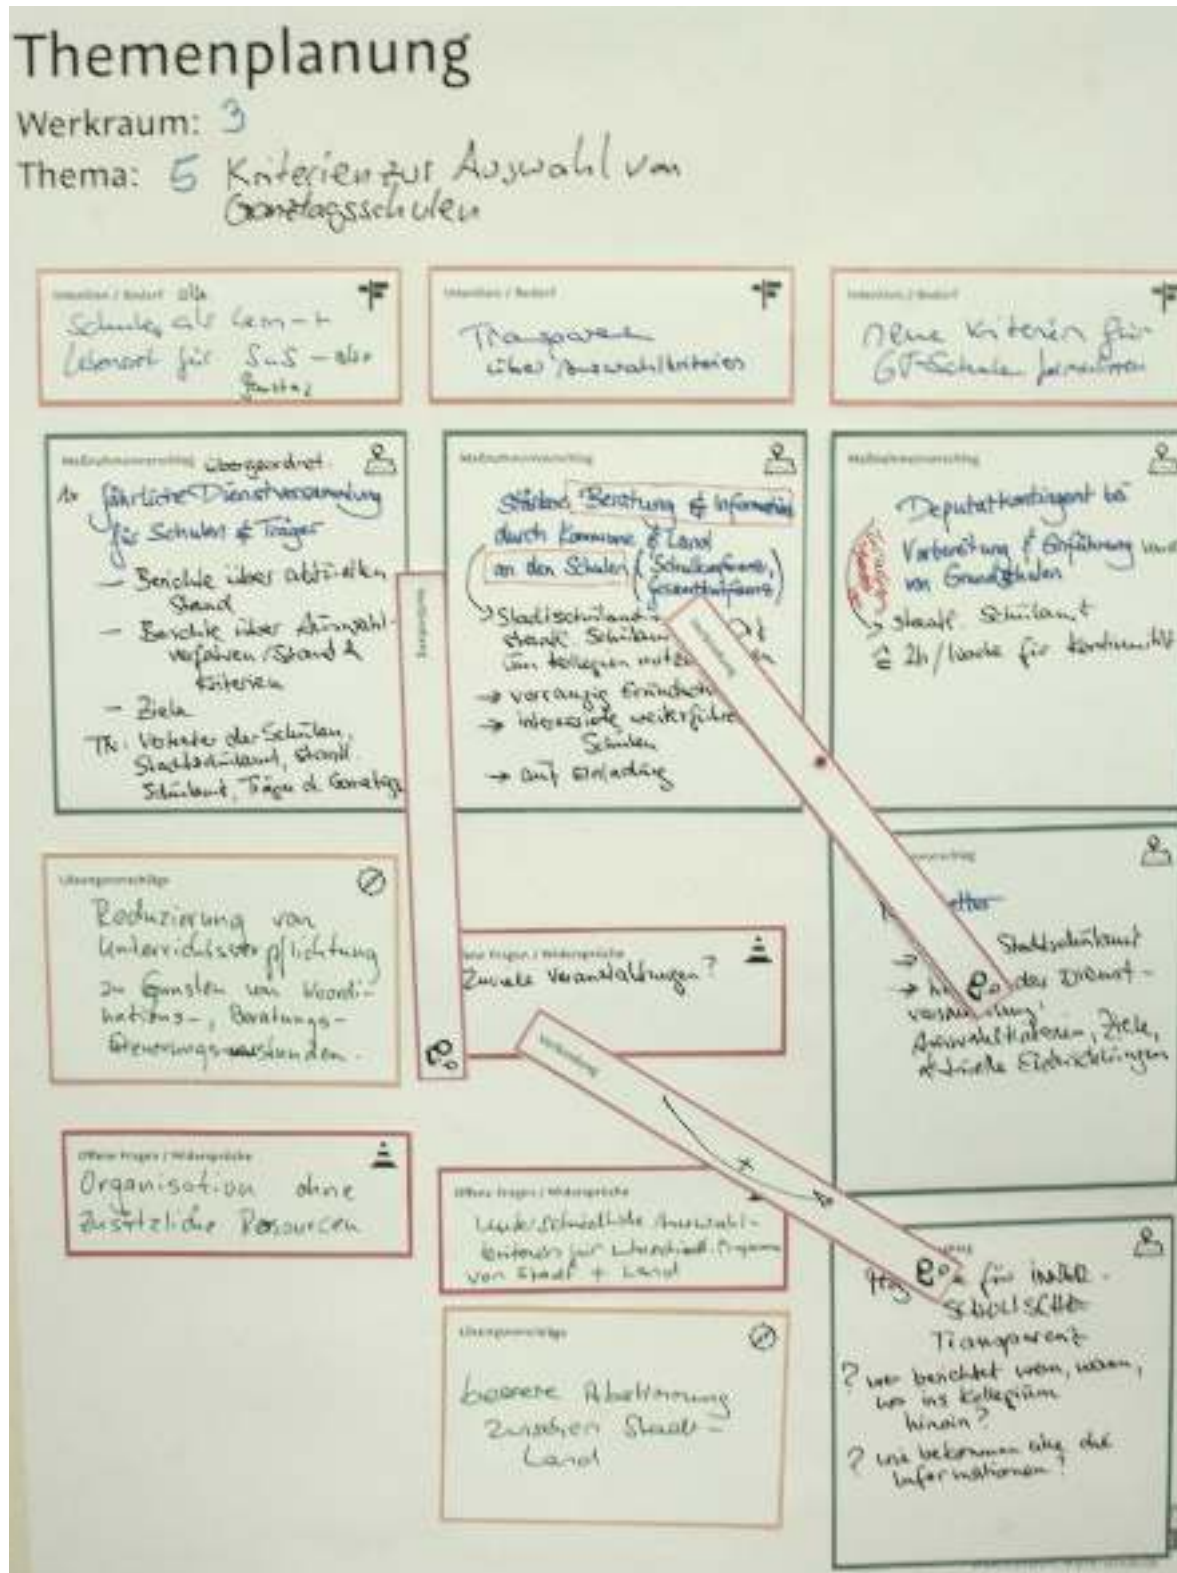 Themenplanung
Werkraum: 3
Thema: 5 Kriterien zur Auswahl von
Ganztagsschulen
Intention / Bedarf alle
Schulen als Lern- +
Lebensort für SuS - also
Ganztag
Intention / Bedarf
Transparenz
über Auswahlkriterien
Intention / Bedarf
neue Kriterien für
GT-Schulen formulieren
Maßnahmenvorschlag übergeordnet
1x jährliche Dienstversammlung
für Schulen & Träger
- Berichte über aktuellen
Stand
- Berichte über Auswahl-
verfahren/Stand &
Kriterien
- Ziele
TN: Vertreter der Schulen,
Stadtschulamt, staatl.
Schulamt, Träger d. Ganztags
Maßnahmenvorschlag
stärkere Beratung & Information
durch Kommune & Land
an den Schulen (Schulkonferenz,
Gesamtkonferenz)
Stadtschulamt
staatl. Schulam
um Kollegien
→ vorrangig Grundsch
→ interessierte weiterführe
Schulen
→ auf Einladung
Maßnahmenvorschlag
Deputatkontingent bei
Vorbereitung & Einführung
von Grundschulen
→ staatl. Schulamt
≙ 2h/Woche für Kontinuität
Verbindung
Lösungsvorschläge
Reduzierung von
Unterrichtsverpflichtung
zu Gunsten von Koordi-
nations-, Beratungs-
Steuerungsstunden.
Fragen / Widersprüche
Zuviele Veranstaltungen?
Stadtschulamt
der Dienst-
versammlung,
Auswahlkriterien, Ziele,
aktuelle Entwicklungen
Verbindung
Offene Fragen / Widersprüche
Organisation ohne
zusätzliche Resourcen
Offene Fragen / Widersprüche
Unterschiedliche Auswahl-
kriterien für unterschiedl. Programme
von Stadt + Land
Lösungsvorschläge
bessere Abstimmung
zwischen Stadt-
Land
für INNER-
SCHULISCHE
Transparenz
? wer berichtet wem, wann,
wo ins Kollegium
hinein?
? wie bekommen alle die
Informationen?